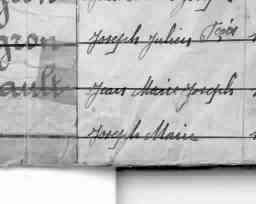 Joseph Julien
gron
ault Jean Marie Joseph
Joseph Marie